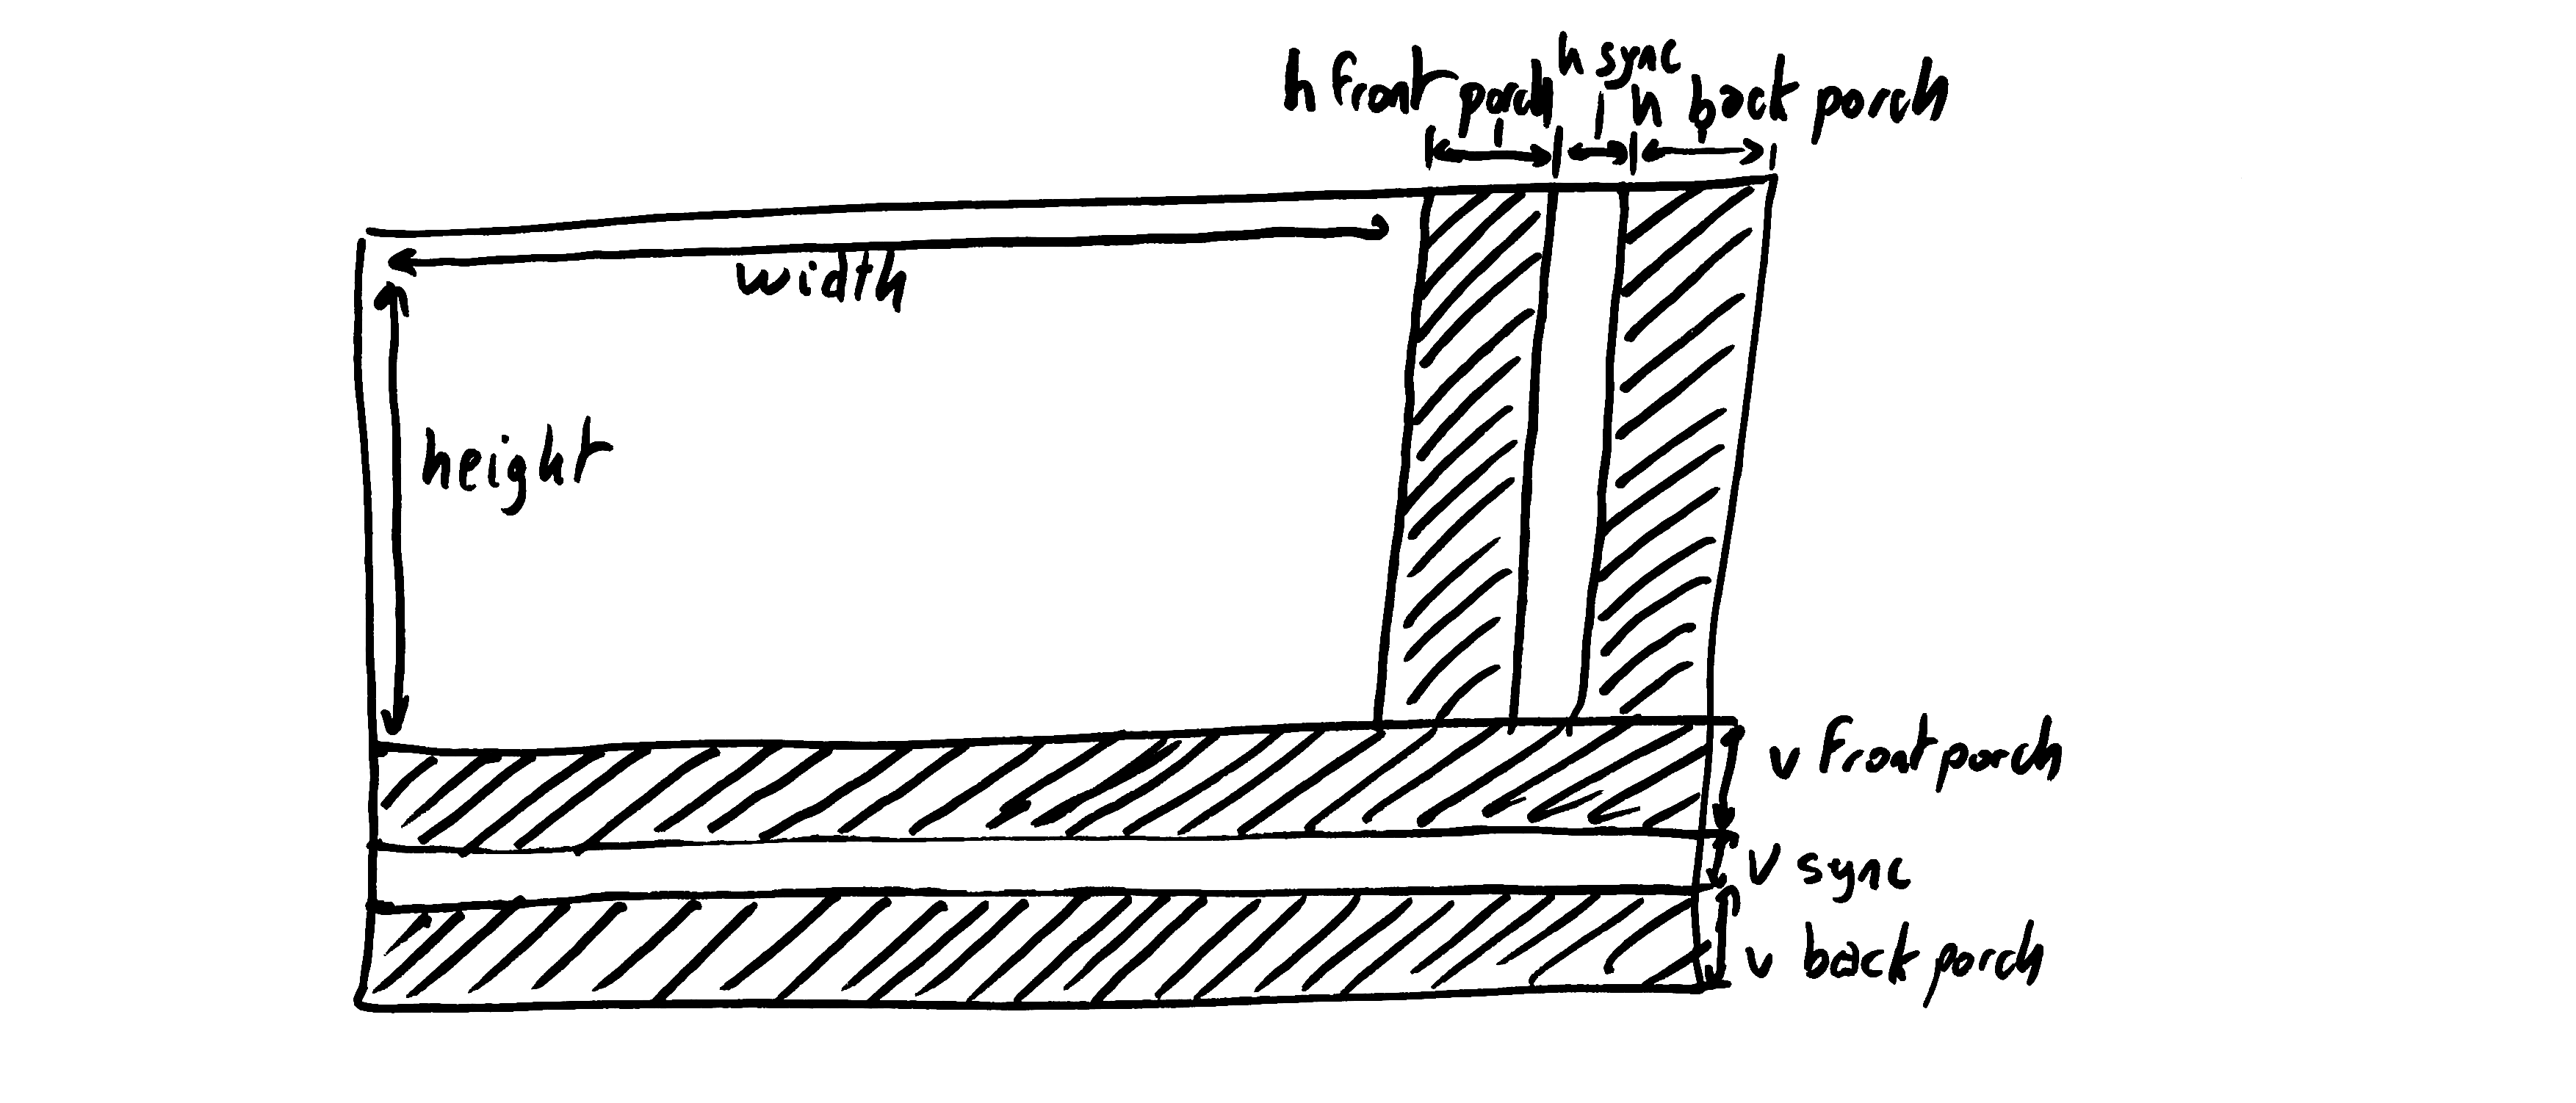 h front porch
h sync
h back porch
width
height
v front porch
v sync
v back porch